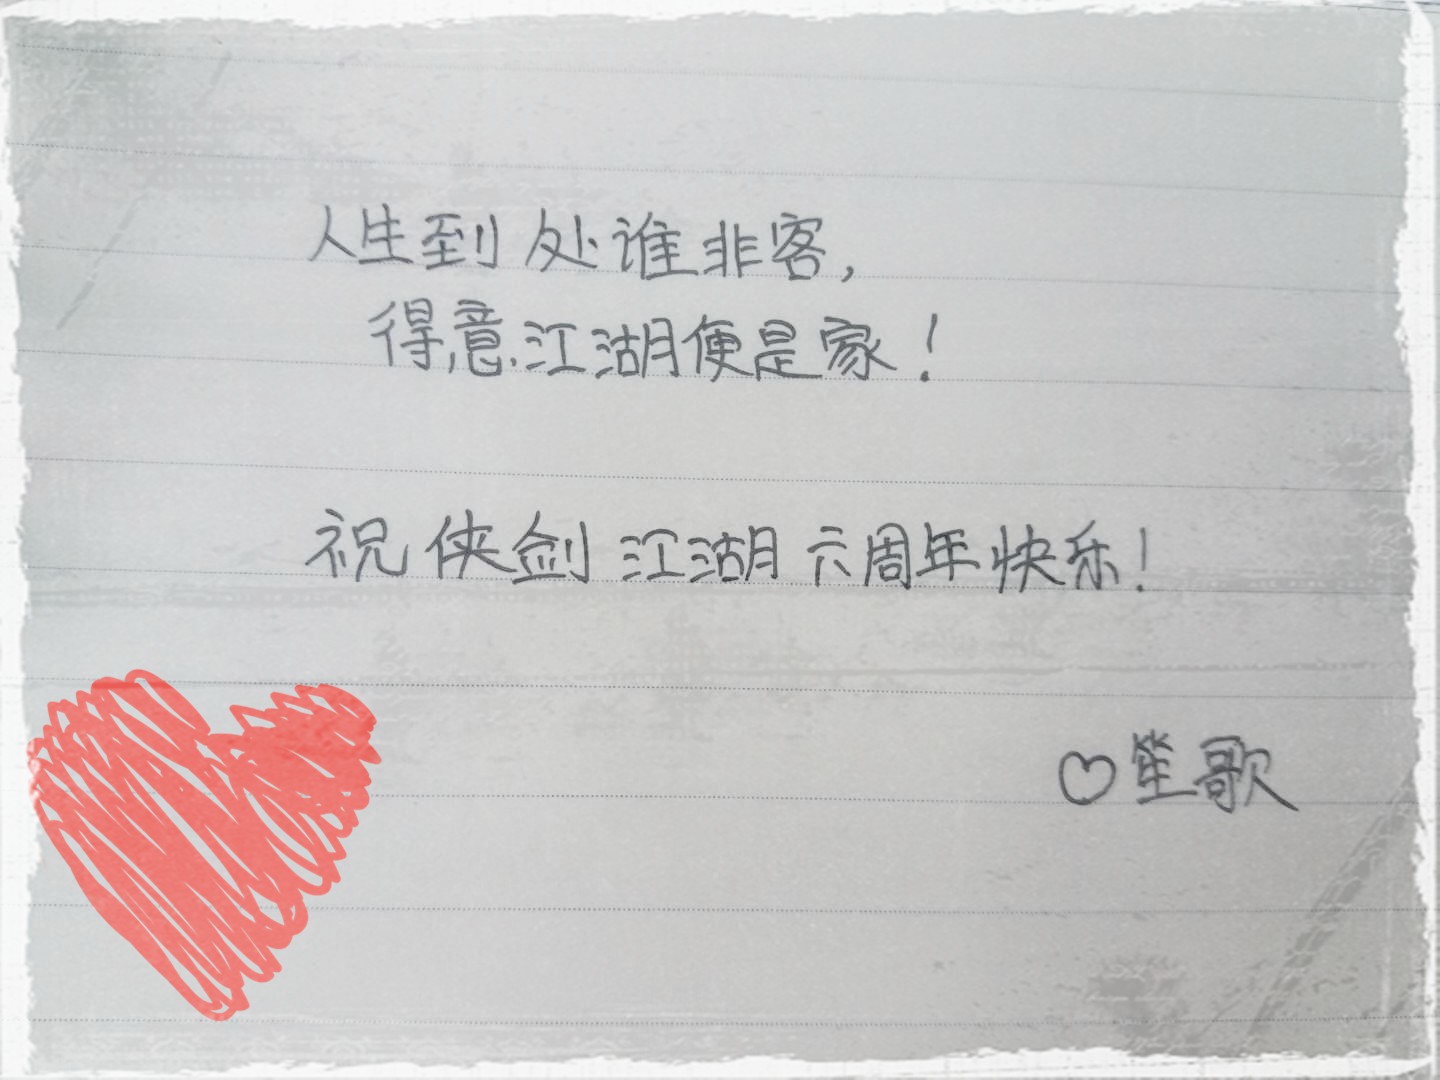 人生到处谁非客，
得意江湖便是家！
祝侠剑江湖六周年快乐！
♡笙歌